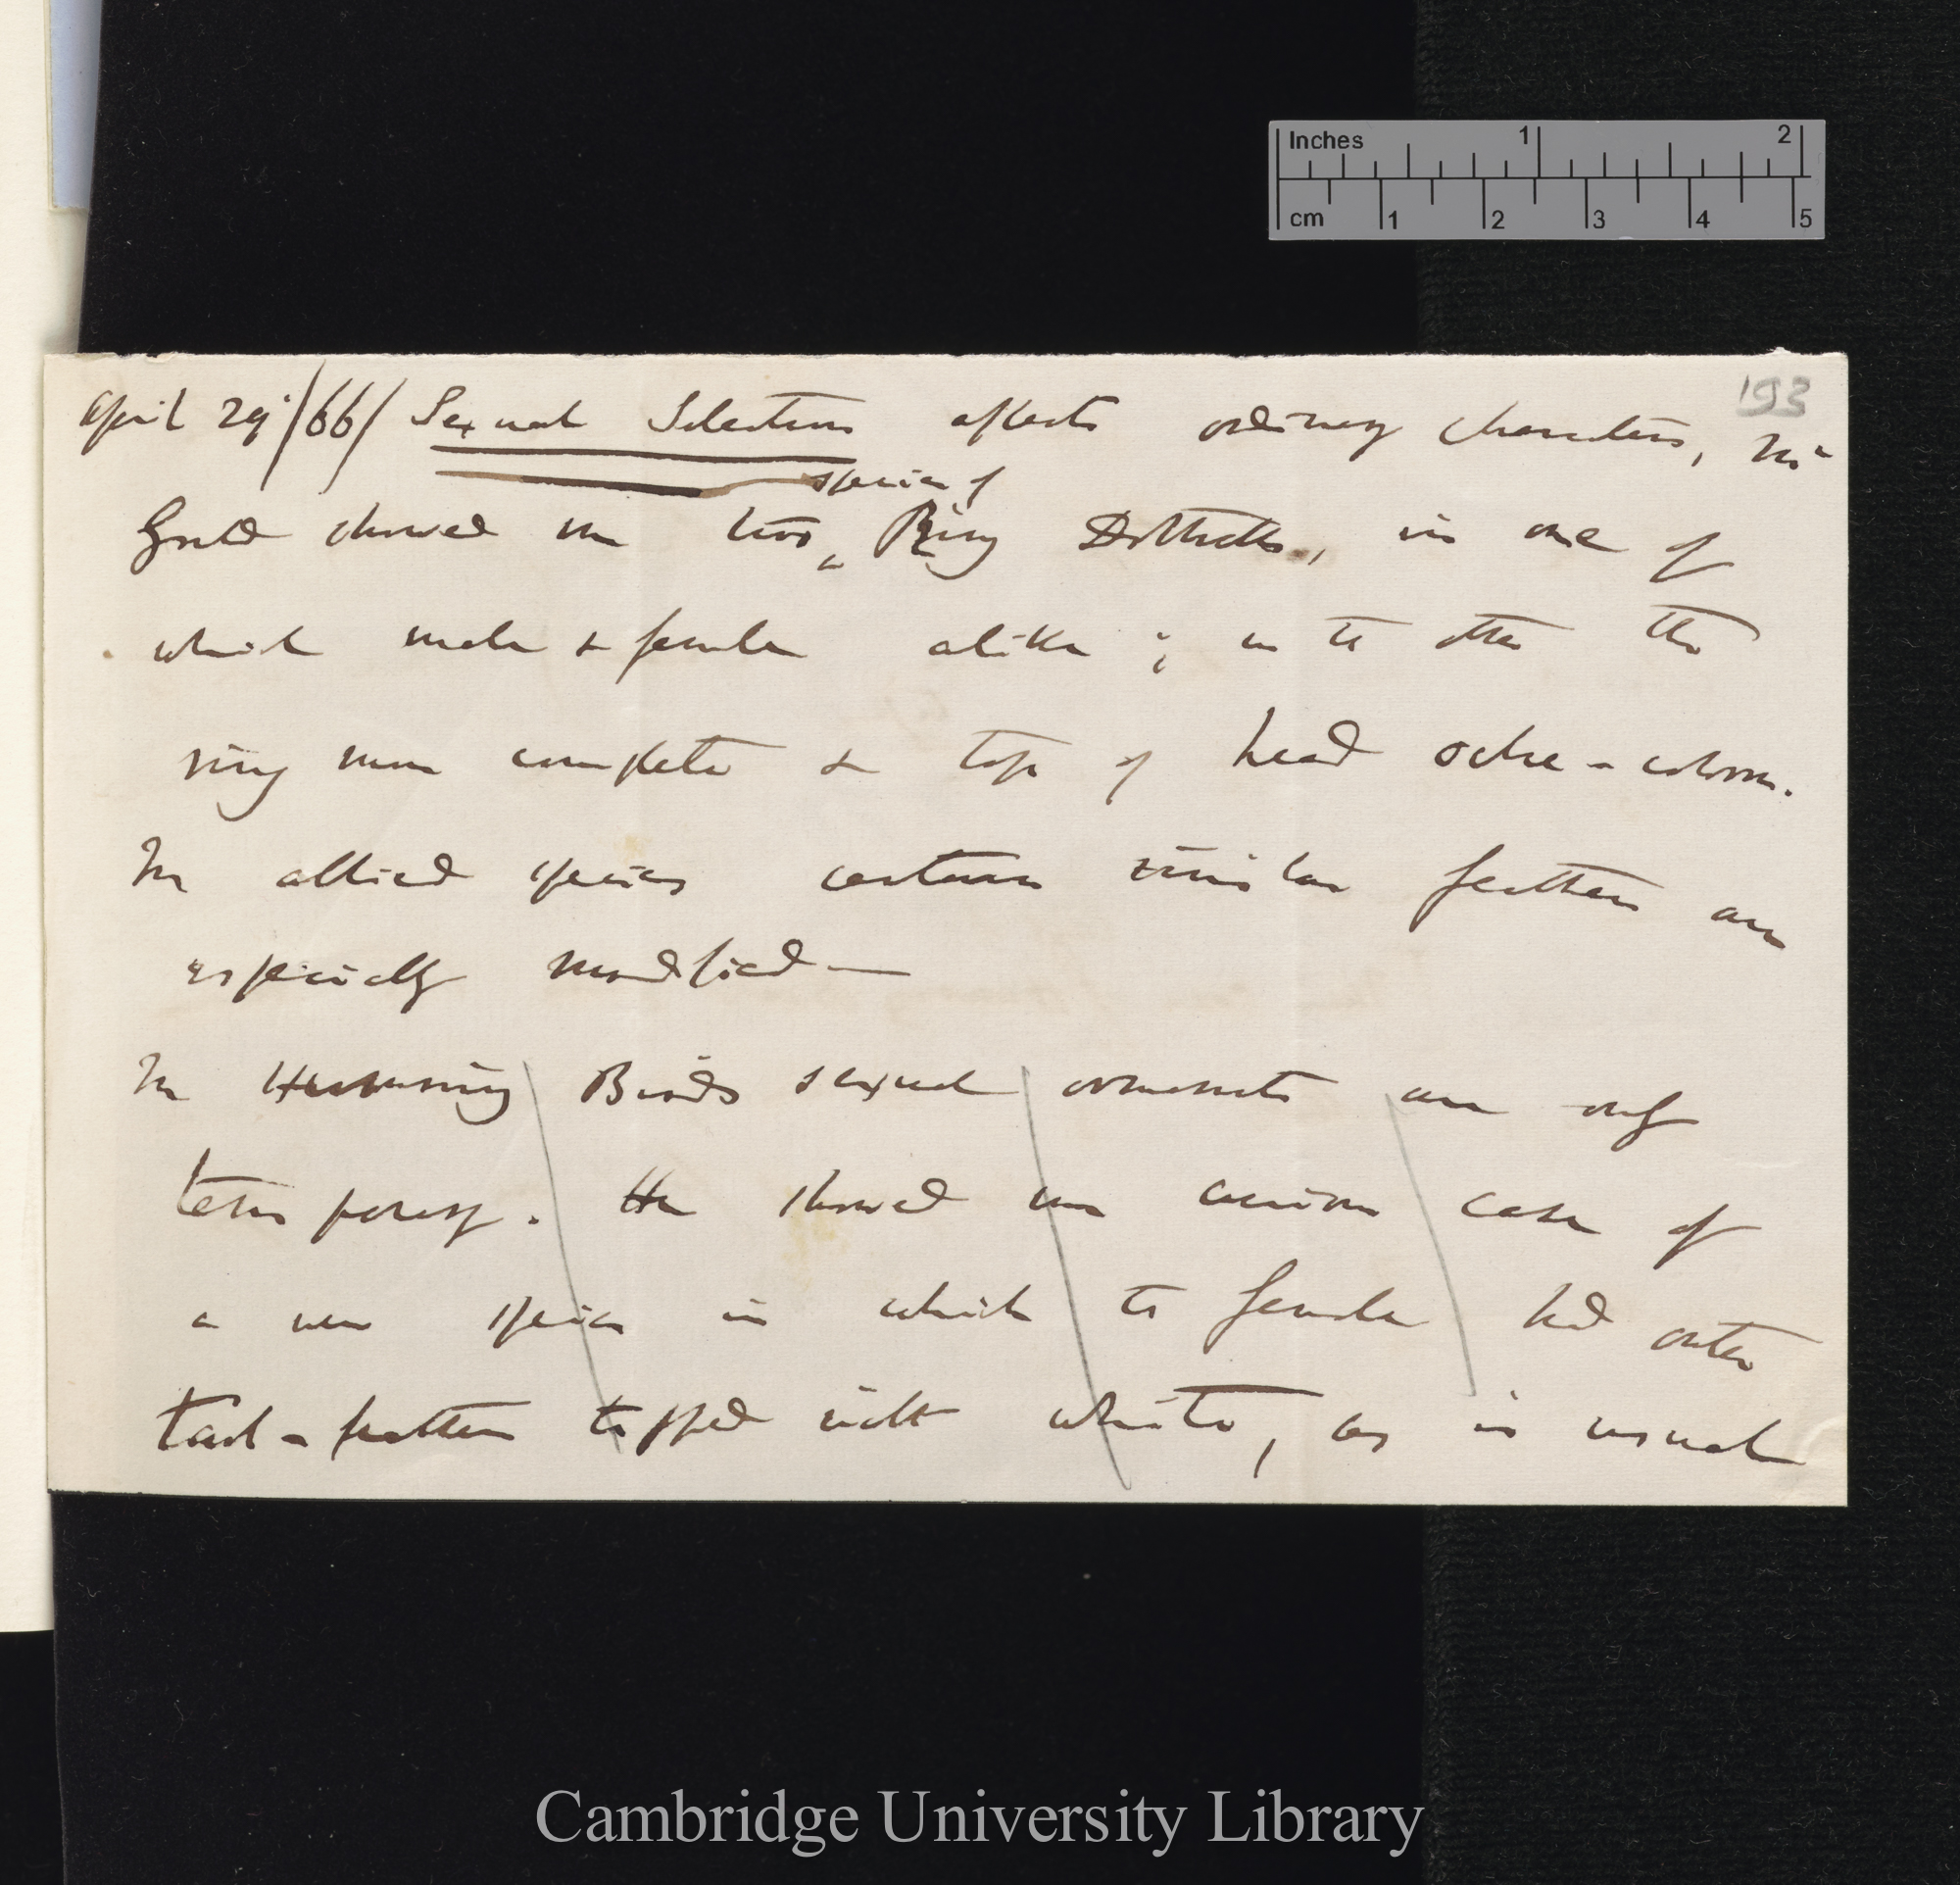 Inches 1 2
cm 1 2 3 4 5
193
April 29/66/ Sexual Selection affects ordinary characters, Mr
species of
Gould showed me two Ring Dottrells, in one of
which male & female alike; in the other the
ring more complete & top of head ochre-colour.
In allied species certain similar feathers are
especially modified —
In Humming Birds sexual ornaments are only
temporary. He showed me curious case of
a new species in which the female had outer
tail-feathers tipped with white, as is usual
Cambridge University Library